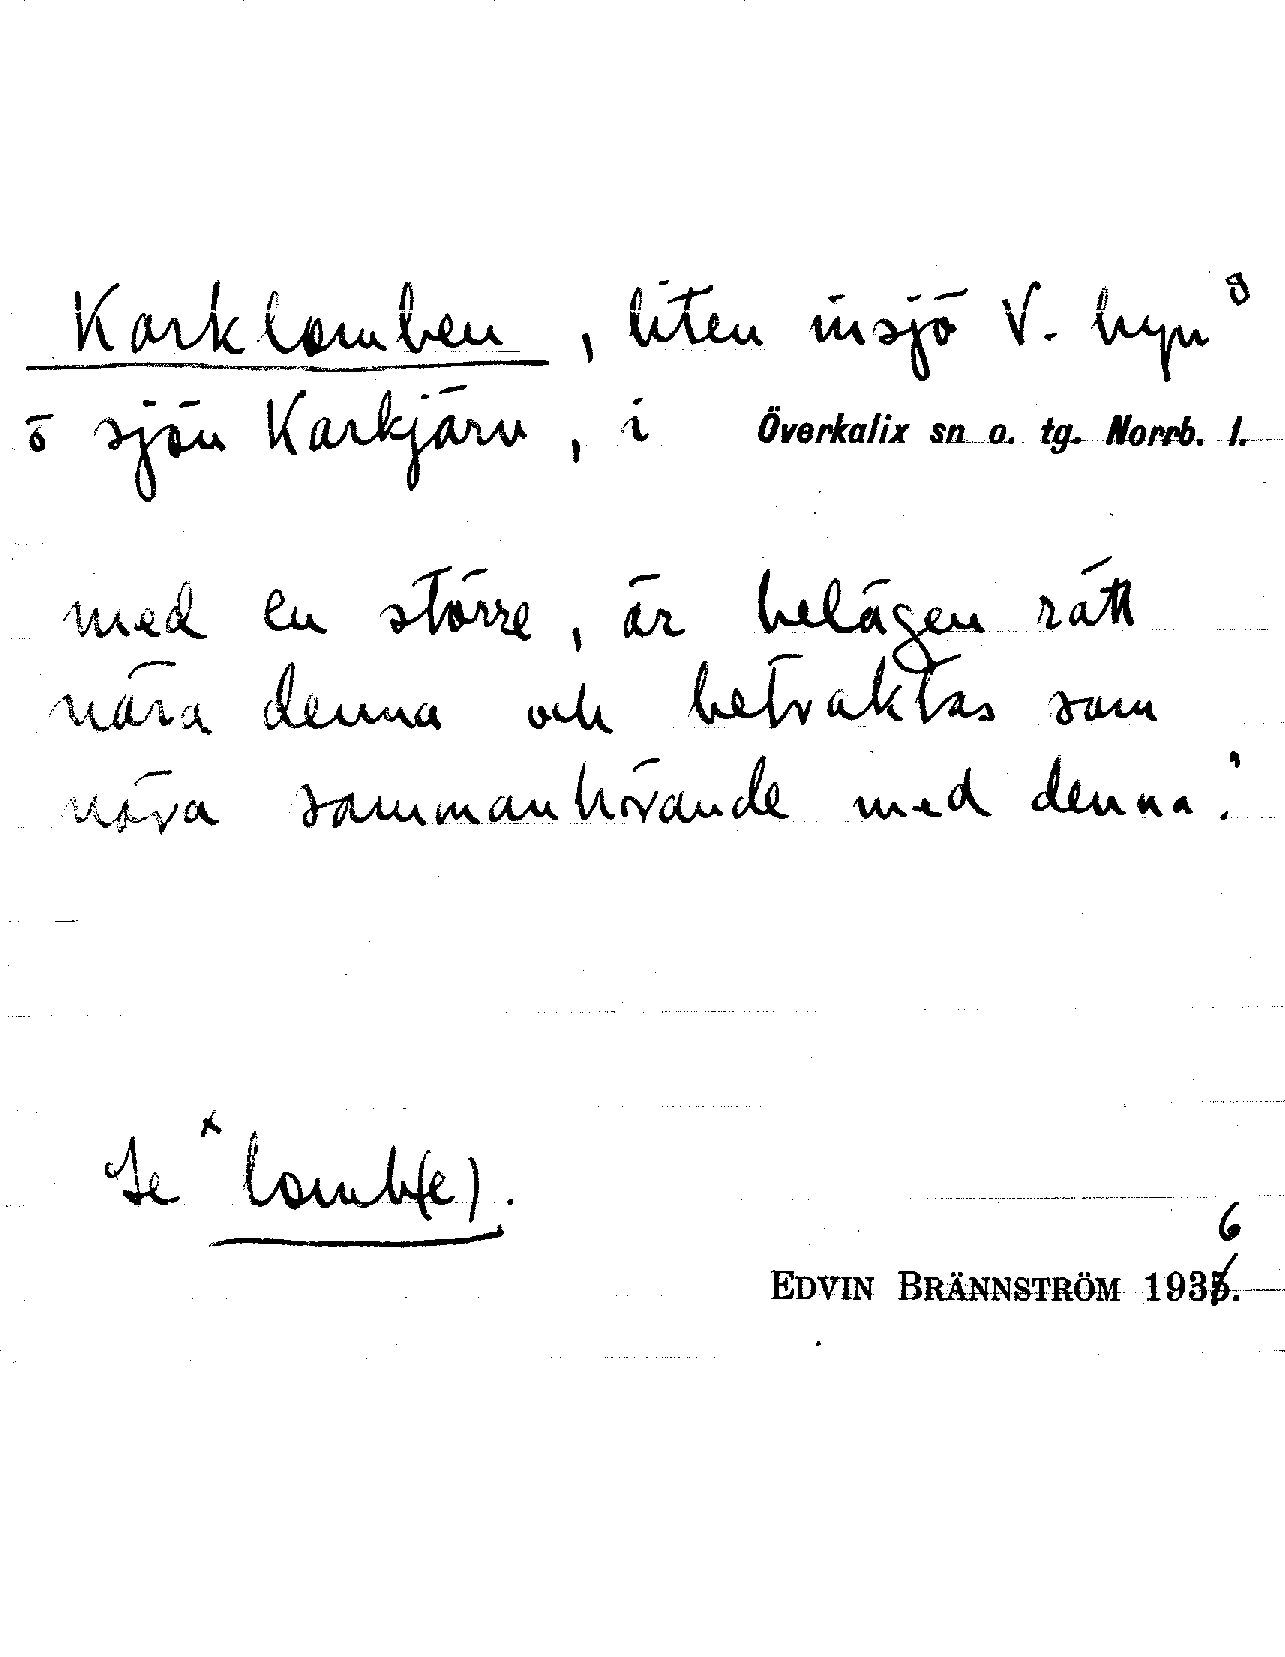 Karklomben, liten insjö V. hyn
ö sjön Karkjärv, i Överkalix sn o. tg. Norrb. l.
med en större, är belägen rätt
nära denna och betraktas som
nära sammanhörande med denna."
Se ˣlomb(e).
6
EDVIN BRÄNNSTRÖM 1935.